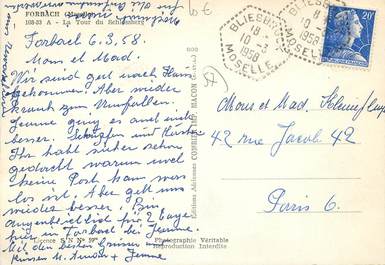 FORBACH
108-33 A - La Tour du
Forbach 6.3.58
Mons et Mad.
Wir sind gut nach Haus
gekommen. Aber wieder
krank zum
Jeanne ging es auch nicht
besser. Schnüpfen und Husten
Ihr habt sicher schon
gedacht warum weil
keine Post kam was
los ist. Aber geht uns
wieder besser. Bin
augenblicklich für 2 Tage
hier in Forbach bei Jeanne.
Mit den besten Grüssen und
Küssen
Licence S.P.N. N° 39
Photographie Véritable
Reproduction Interdite
Editions Aériennes COMBIER IMP. MACON
600
57
BLIESBRUCK
18
10-3
1958
MOSELLE
BLIES
18
10-3
1958
MOSELLE
20F
Mons et Mad.
42 rue Jacob 42
Paris 6.